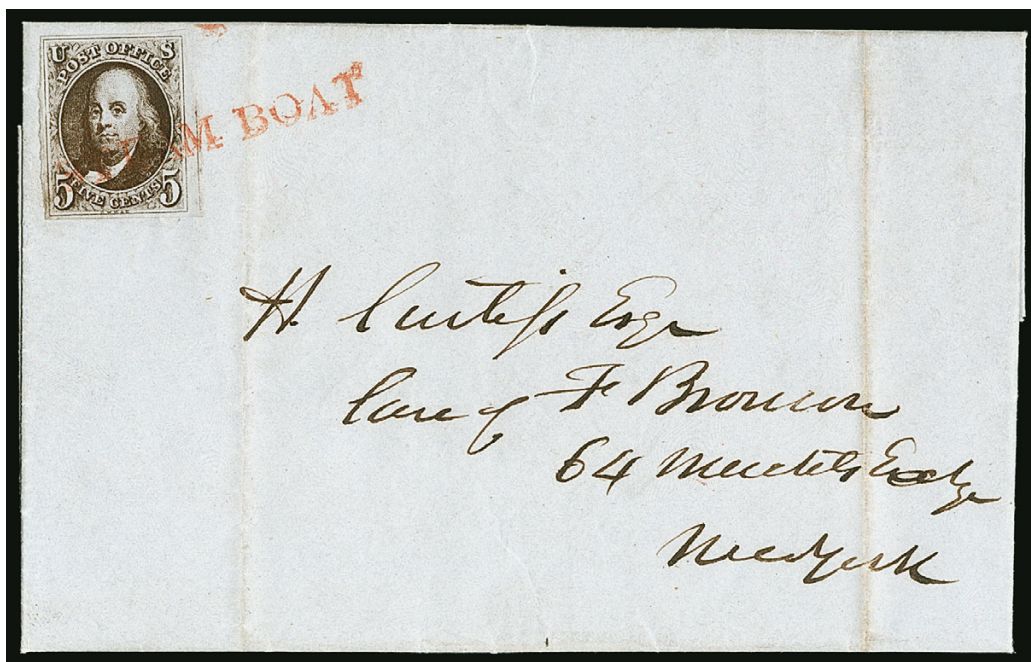 U S
POST OFFICE
5 FIVE CENTS 5
STEAM BOAT
H. Curtiss Esqr
Care of F Bronson
64 Merchts Exchge
New York